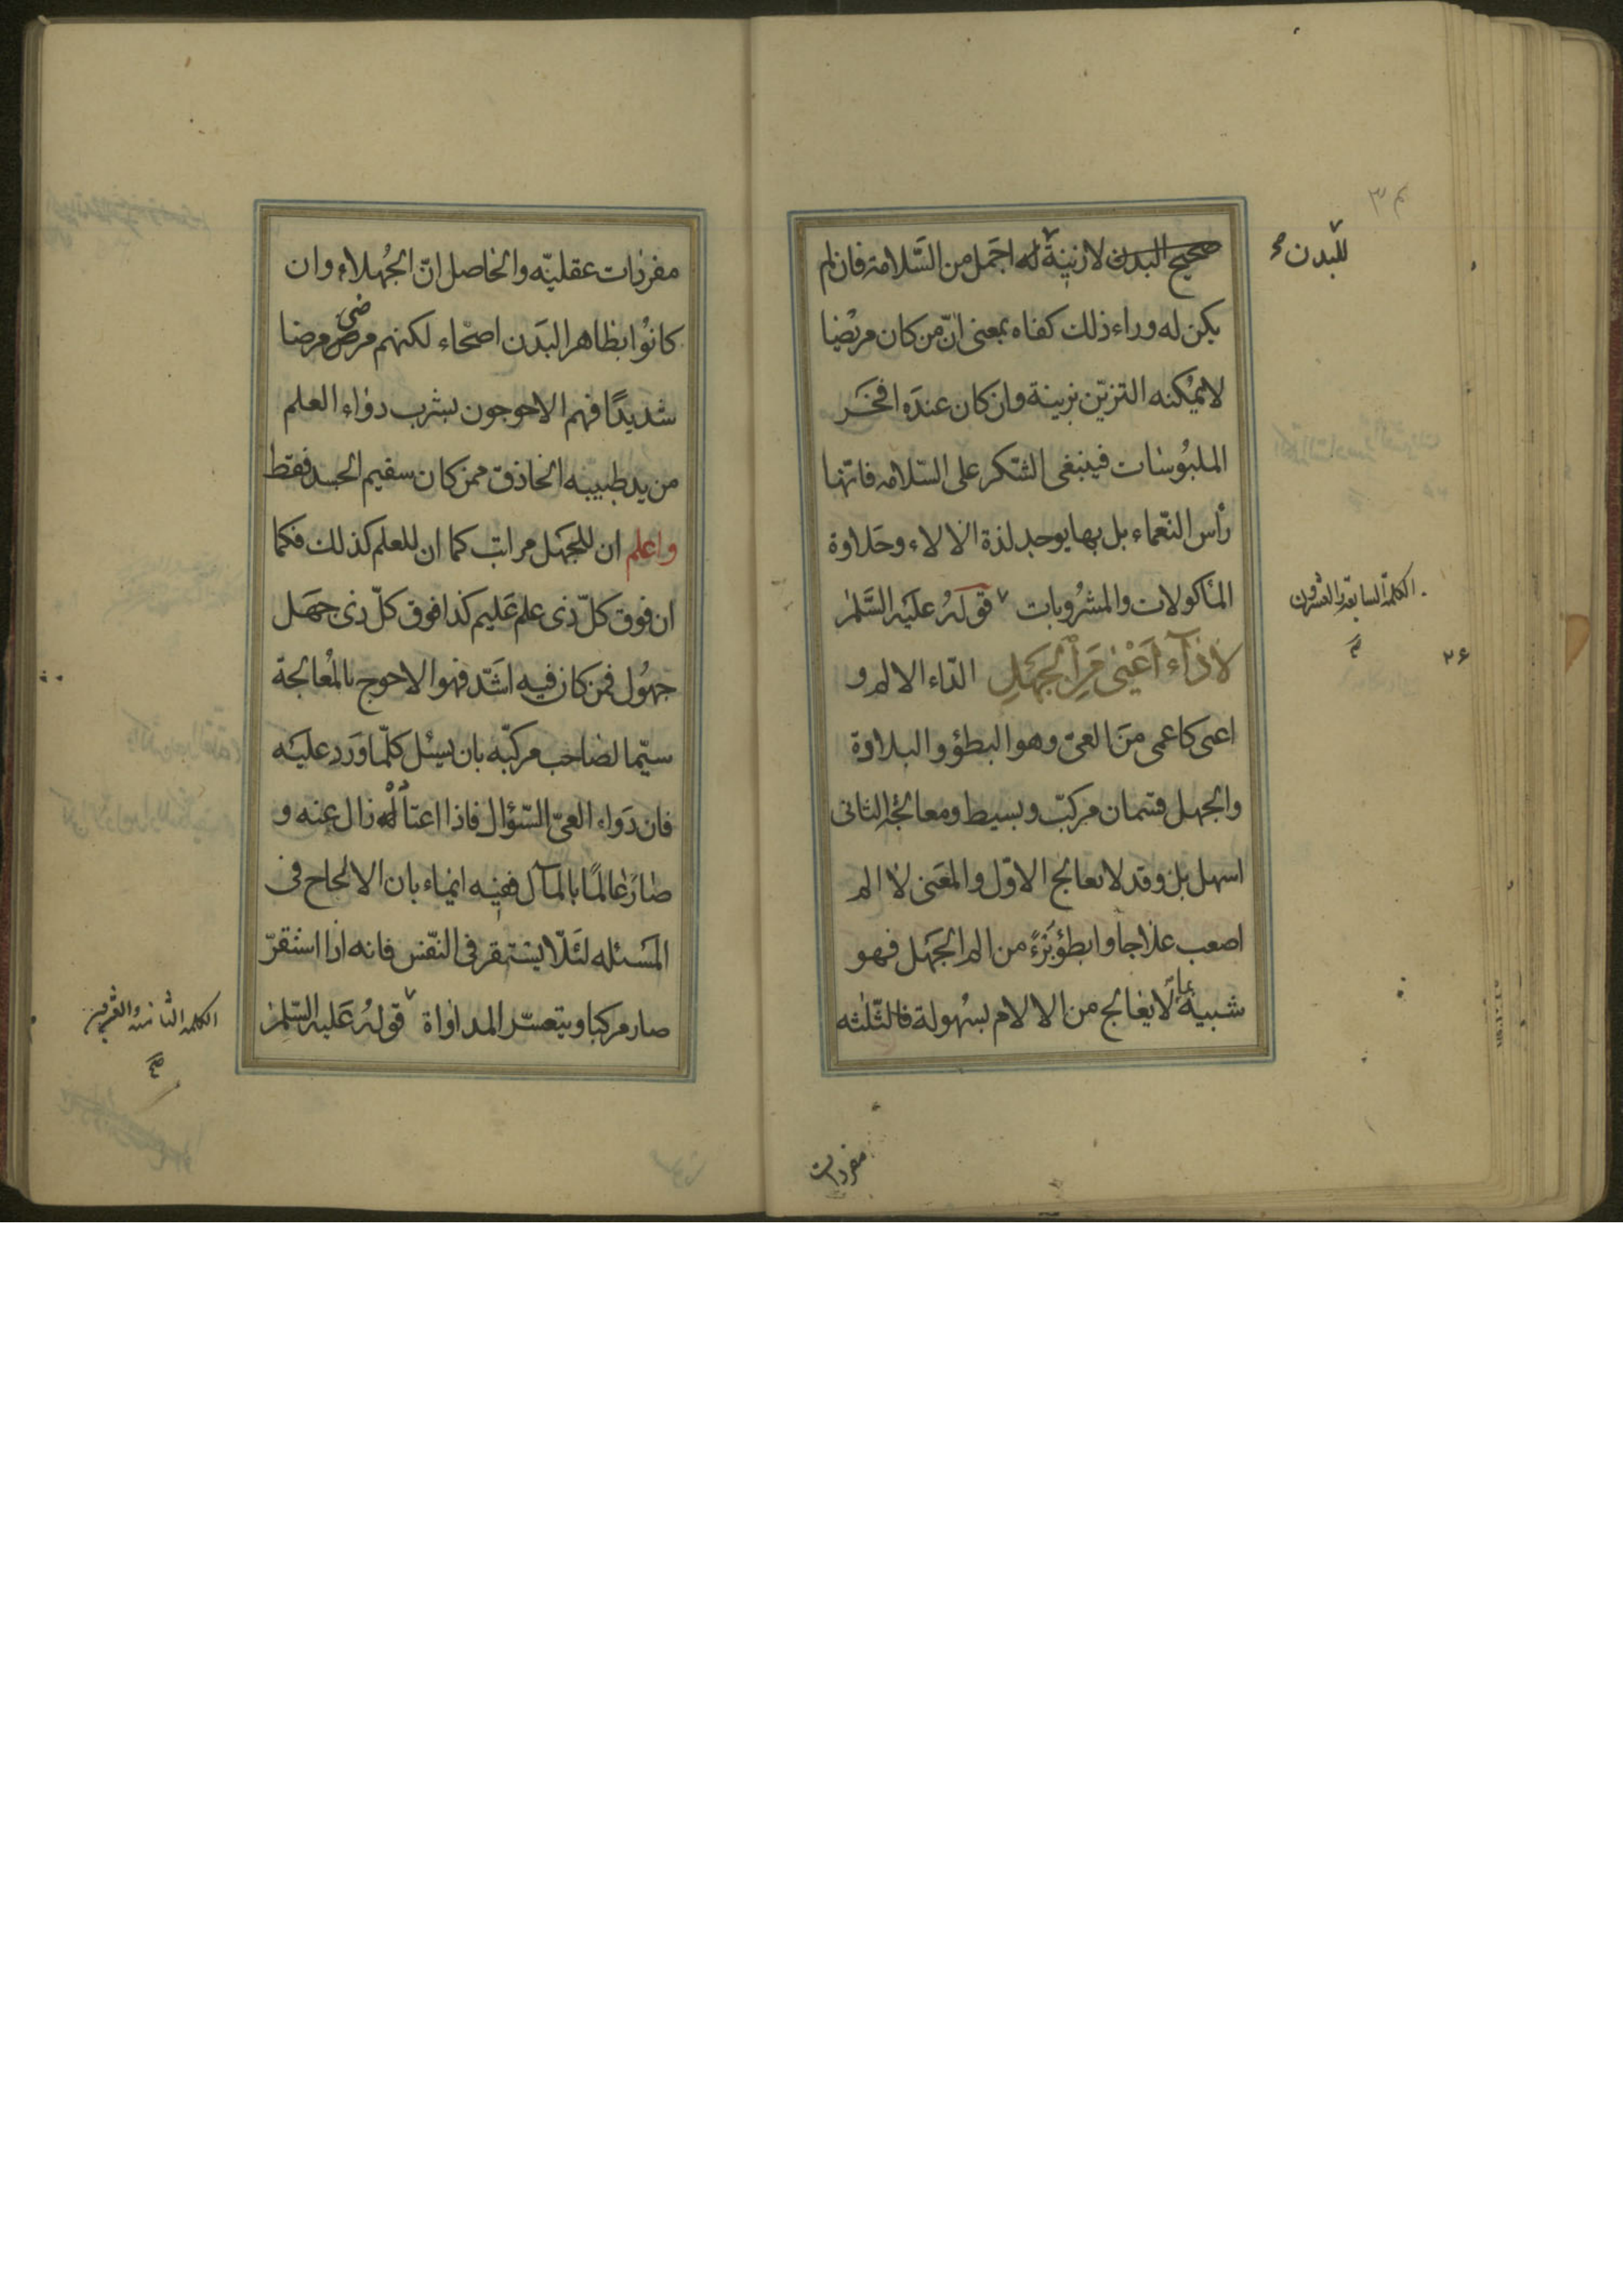 صحيح البدن لا زينة له اجمل من السّلامة فان لم
للبدن صح
يكن له وراء ذلك كفاه بمعنى انّ من كان مريضا
لا يمكنه التزيّن بزينة وان كان عنده افخر
الملبوسات فينبغى الشكر على السّلامه فانّها
رأس النّعماء بل بها يوجد لذة الالاء وحلاوة
المأكولات والمشروبات قوله عليه السّلم
الكلمة السابعة والعشرون
لا دآء اعيى من الجهل الدّاء الالم و
۲۶
اعى كاعمى من العىّ وهو البطؤ والبلادة
والجهل قسمان مركّب وبسيط ومعالجة الثانى
اسهل بل وقد لا يعالج الاوّل والمعنى لا الم
اصعب علاجا وابطؤ بزءً من الم الجهل فهو
شبيه بما لا يعالج من الالام بسهولة فالثّلثه
مفردات
مفردات عقليّه والحاصل انّ الجهلاء وان
كانوا بظاهر البدن اصحاء لكنهم مرضى مرضا
شديدًا فهم الاحوجون بشرب دواء العلم
من يد طبيبه الحاذق ممن كان سقيم الجسد فقط
واعلم ان للجهل مراتب كما ان للعلم كذلك فكما
ان فوق كلّ ذى علم عليم كذا فوق كلّ ذى جهل
جهول فمن كان فيه اشدّ فهو الاحوج بالمعالجة
سيّما لصاحب مركّبه بان يسئل كلّما ورد عليه
فان دواء العىّ السّؤال فاذا اعتا له زال عنه و
صار عالمًا بالمآل ففيه ايماء بان الالحاح فى
المسئله لئلّا يستقر فى النّفس فانه اذا استقرّ
صار مركبا ويتعسّر المداواة قوله عليه السّلم
الكلمة الثامنة والعشرين